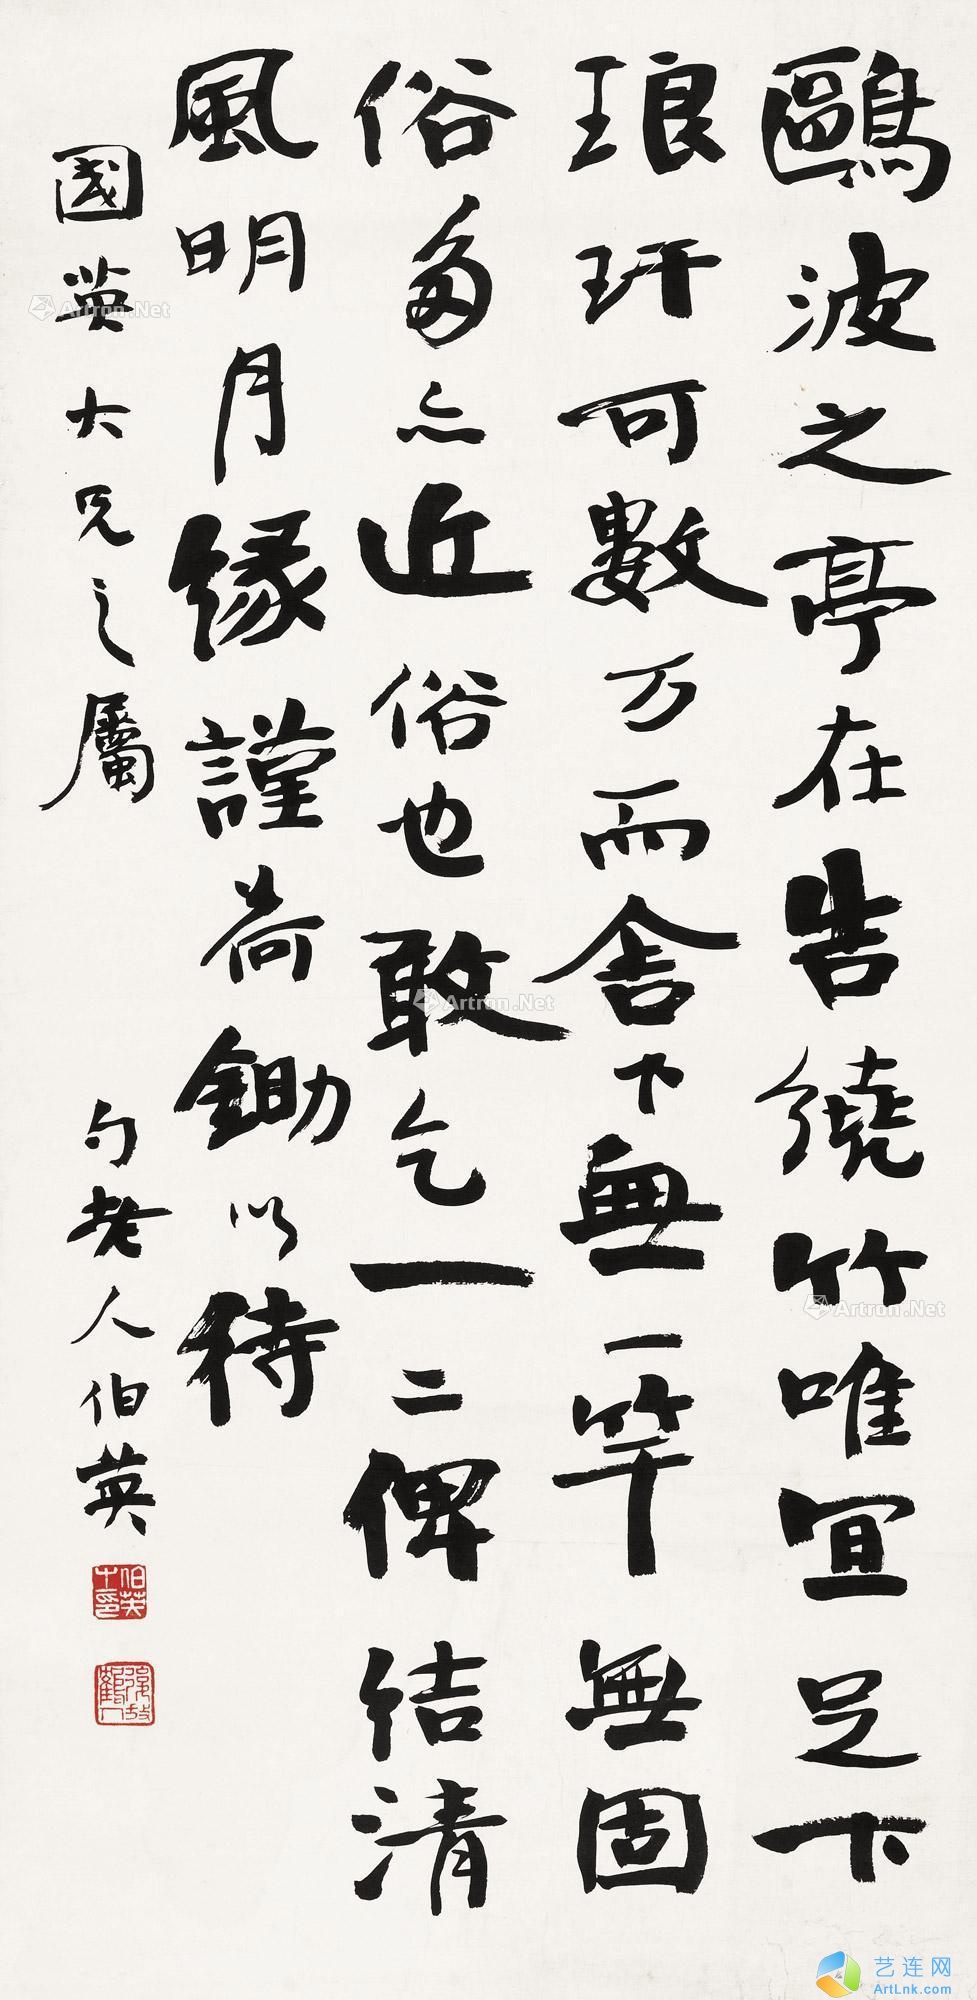 鷗波之亭在告繞竹唯宜足下
琅玕可數万而舍下無一竿無固
俗多亦近俗也敢乞一二俾結清
風明月緣謹荷鋤以待
國英大兄之屬
勺老人伯英
伯英
Artron.Net
Artron.Net
Artron.Net
艺连网
ArtLnk.com